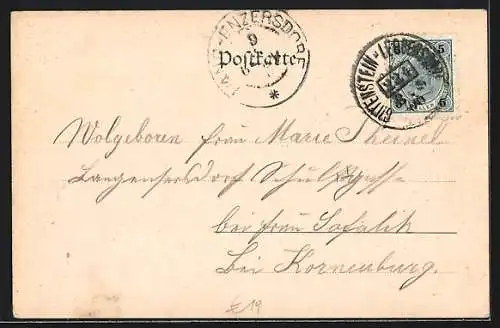 LANG-ENZERSDORF
9
Postkarten
GUTENSTEIN - LEOBERSDORF
5
5
Wolgeboren frau Marie Theinel
Langensersdorf Schulgasse
bei frau Safalik
Bei Korneuburg.
€19